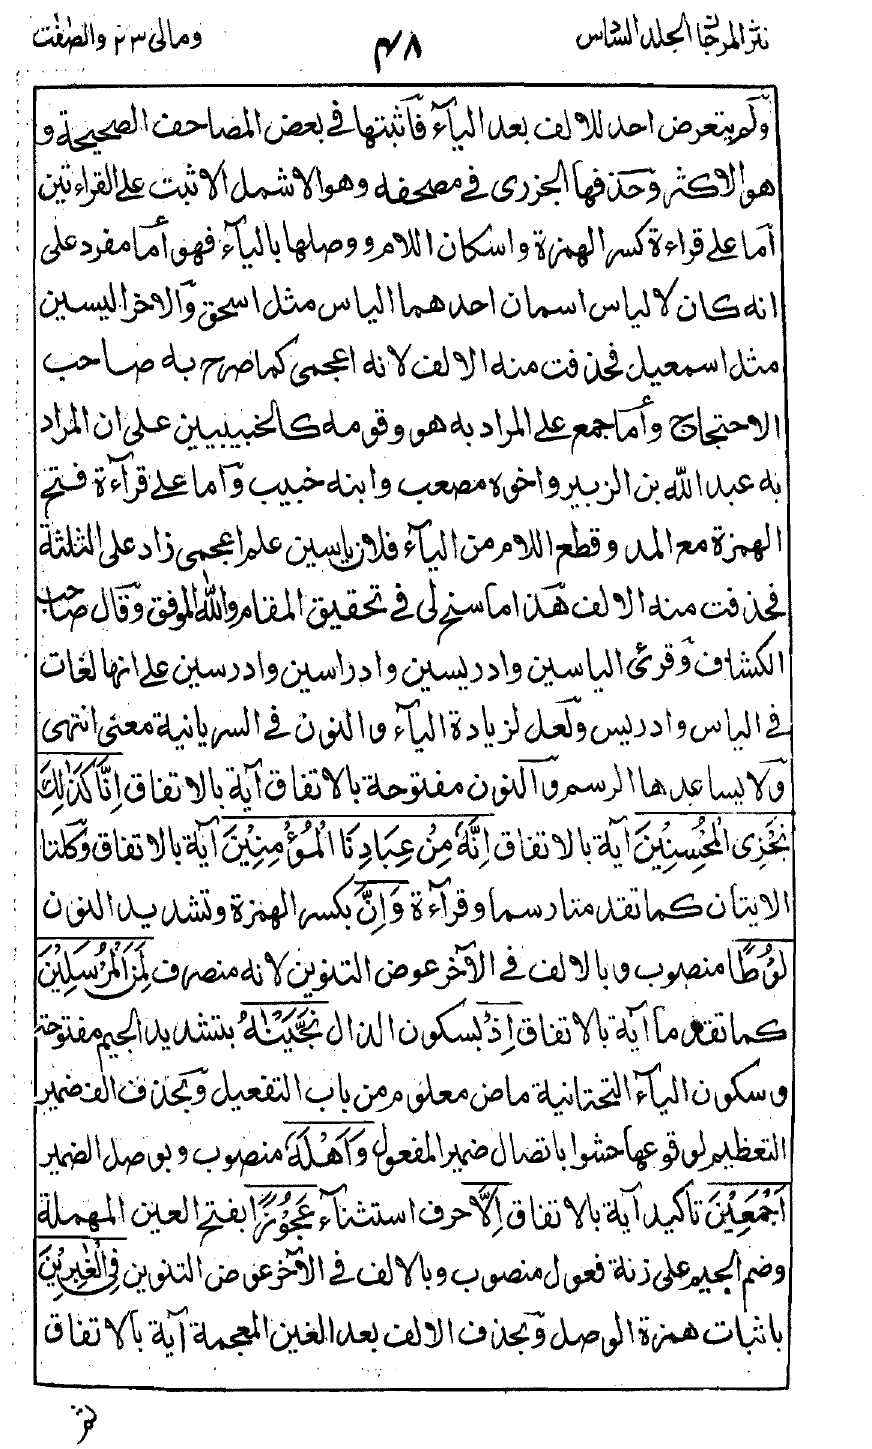 نثر المرجان الجلد السادس ۴۸ ومالى ٢٣ والصفت
ولم يتعرض احد للالف بعد اليآء فأثبتها في بعض المصاحف الصحيحة و
هو الاكثر وحذفها الجزرى في مصحفه وهو الاشمل الاثبت على القراءتين
أما على قراءة كسر الهمزة واسكان اللام ووصلها باليآء فهو أما مفرد على
انه كان لالياس اسمان احدهما الياس مثل اسحق والاخر اليسين
مثل اسمعيل فحذفت منه الالف لانه اعجمى كما صرح به صاحب
الاحتجاج وأما جمع على المراد به هو وقومه كالخبيبيين على ان المراد
به عبد الله بن الزبير واخوه مصعب وابنه خبيب وأما على قرآءة فتح
الهمزة مع المد وقطع اللام من اليآء فلان ياسين علم اعجمى زاد على الثلثة
فحذفت منه الالف هذا ما سنح لى في تحقيق المقام والله الموفق وقال صاحب
الكشاف وقرئ الياسين وادريسين وادراسين وادرسين على انها لغات
في الياس وادريس ولعل لزيادة اليآء والنون في السريانية معنى انتهى
ولا يساعدها الرسم والنون مفتوحة بالاتفاق آية بالاتفاق اِنَّا كَذٰلِكَ
نَجْزِى الْمُحْسِنِيْنَ آية بالاتفاق اِنَّهٗ مِنْ عِبَادِنَا الْمُؤْمِنِيْنَ آية بالاتفاق وكلتا
الايتان كما تقدمتا رسما وقرآءة وَاِنَّ بكسر الهمزة وتشديد النون
لُوْطًا منصوب وبالالف في الآخر عوض التنوين لانه منصرف لَمِنَ الْمُرْسَلِيْنَ
كما تقدم مآ آية بالاتفاق اِذْ بسكون الذال نَجَّيْنٰهُ بتشديد الجيم مفتوحة
وسكون اليآء التحتانية ماض معلوم من باب التفعيل وبحذف الف ضمير
التعظيم لوقوعها حشوا باتصال ضمير المفعول وَاَهْلَهٗ منصوب وبوصل الضمير
اَجْمَعِيْنَ تاكيد آية بالاتفاق اِلَّا حرف استثنآء عَجُوْزًا بفتح العين المهملة
وضم الجيم على زنة فعول منصوب وبالالف في الآخر عوض التنوين فِى الْغٰبِرِيْنَ
باثبات همزة الوصل وبحذف الالف بعد الغين المعجمة آية بالاتفاق
ثم